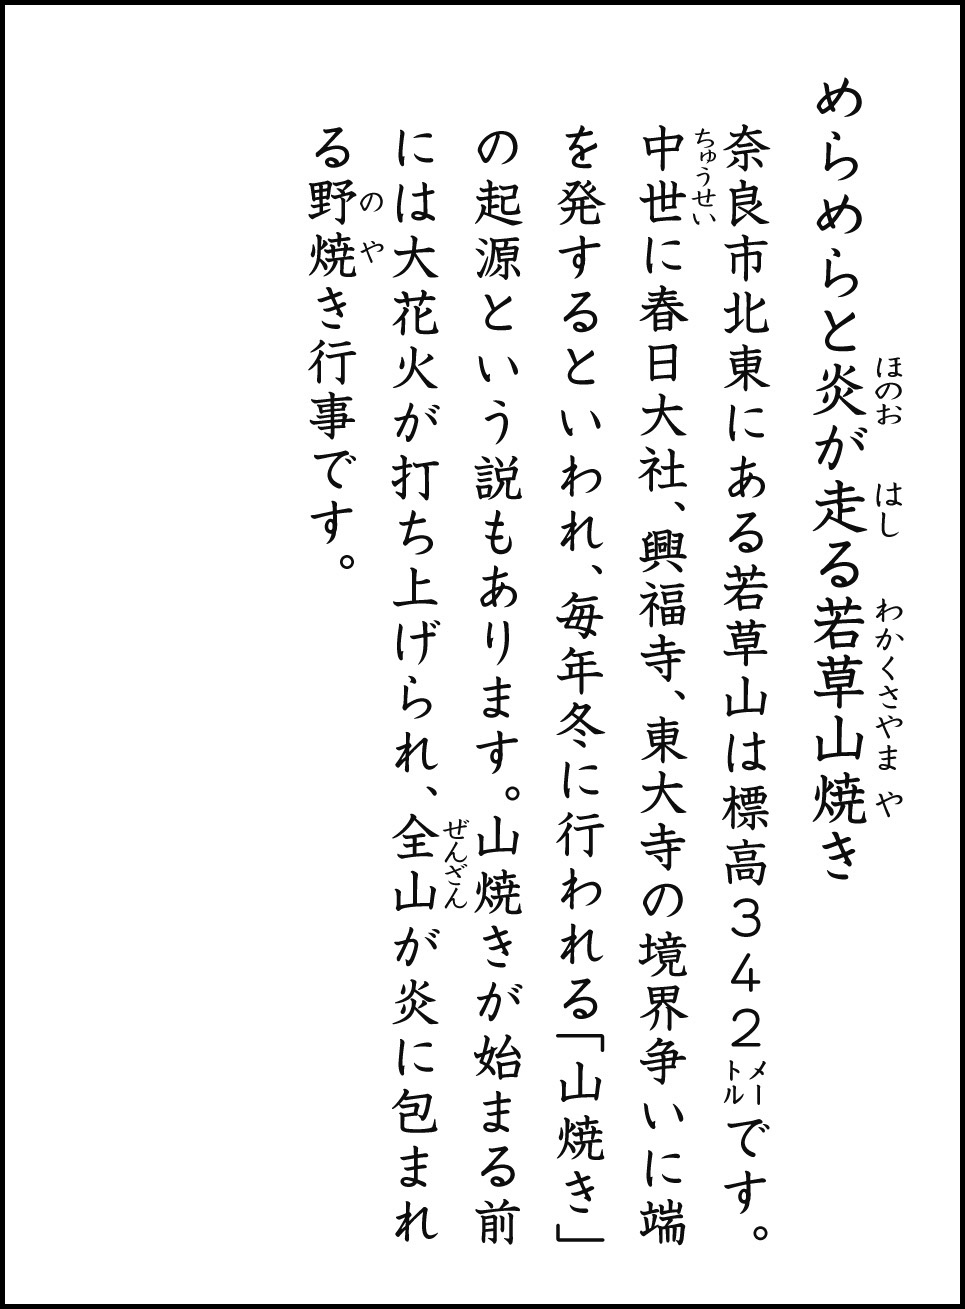 めらめらと炎が走る若草山焼き
ほのお はし わかくさやま や
奈良市北東にある若草山は標高３４２メートルです。
中世に春日大社、興福寺、東大寺の境界争いに端
ちゅうせい
を発するといわれ、毎年冬に行われる「山焼き」
の起源という説もあります。山焼きが始まる前
には大花火が打ち上げられ、全山が炎に包まれ
ぜんざん
る野焼き行事です。
の や